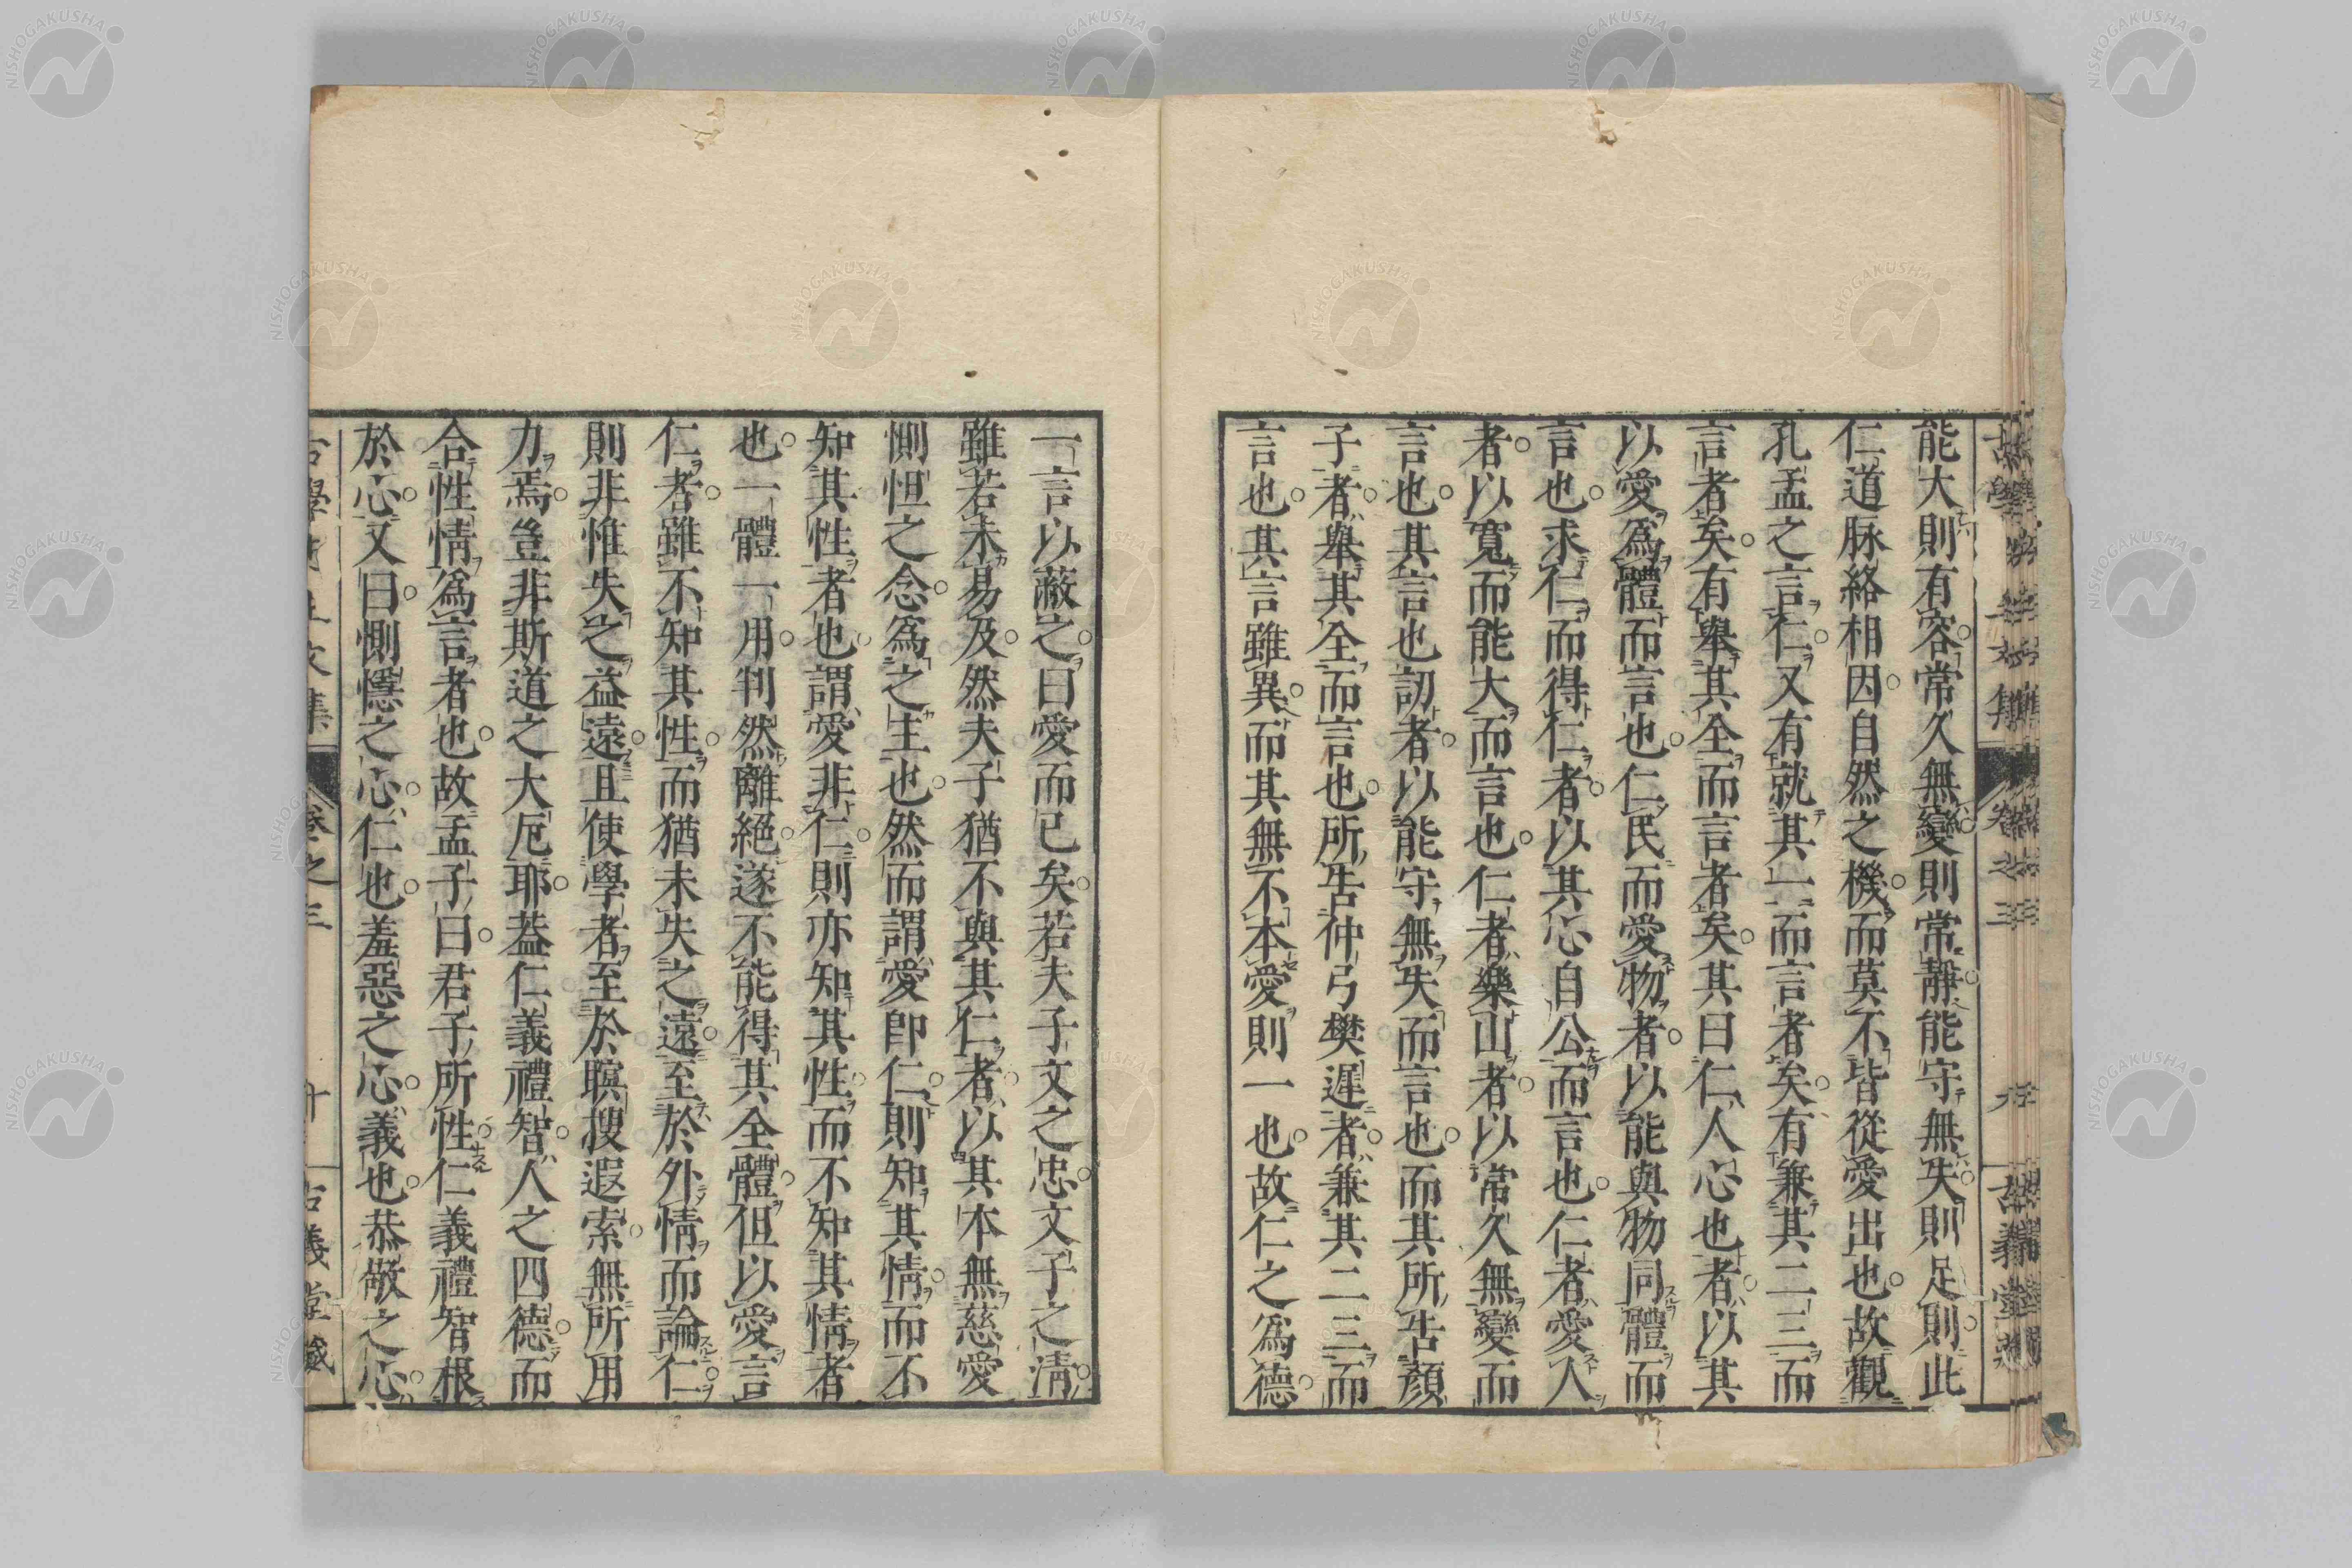 能大則有容常久無變則常靜能守無失則足則此
仁道脉絡相因自然之機而莫不皆從愛出也故觀
孔孟之言仁又有就其一而言者矣有兼其二三而
言者矣有舉其全而言者矣其曰仁人心也者以其
以愛爲體而言也仁民而愛物者以能與物同體而
言也求仁而得仁者以其心自公而言也仁者愛人
者以寬而能大而言也仁者樂山者以常久無變而
言也其言也訒者以能守無失而言也而其所告顏
子者舉其全而言也所告仲弓樊遲者兼其二三而
言也其言雖異而其無不本愛則一也故仁之爲德
一言以蔽之曰愛而已矣若夫子文之忠文子之淸
雖若未易及然夫子猶不與其仁者以其本無慈愛
惻怛之念爲之主也然而謂愛卽仁則知其情而不
知其性者也謂愛非仁則亦知其性而不知其情者
也一體一用判然離絕遂不能得其全體但以愛言
仁者雖不知其性而猶未失之遠至於外情而論仁
則非惟失之益遠且使學者至於瞑搜遐索無所用
力焉豈非斯道之大厄耶葢仁義禮智人之四德而
合性情爲言者也故孟子曰君子所性仁義禮智根
於心又曰惻隱之心仁也羞惡之心義也恭敬之心
卷之三
NISHOGAKUSHA